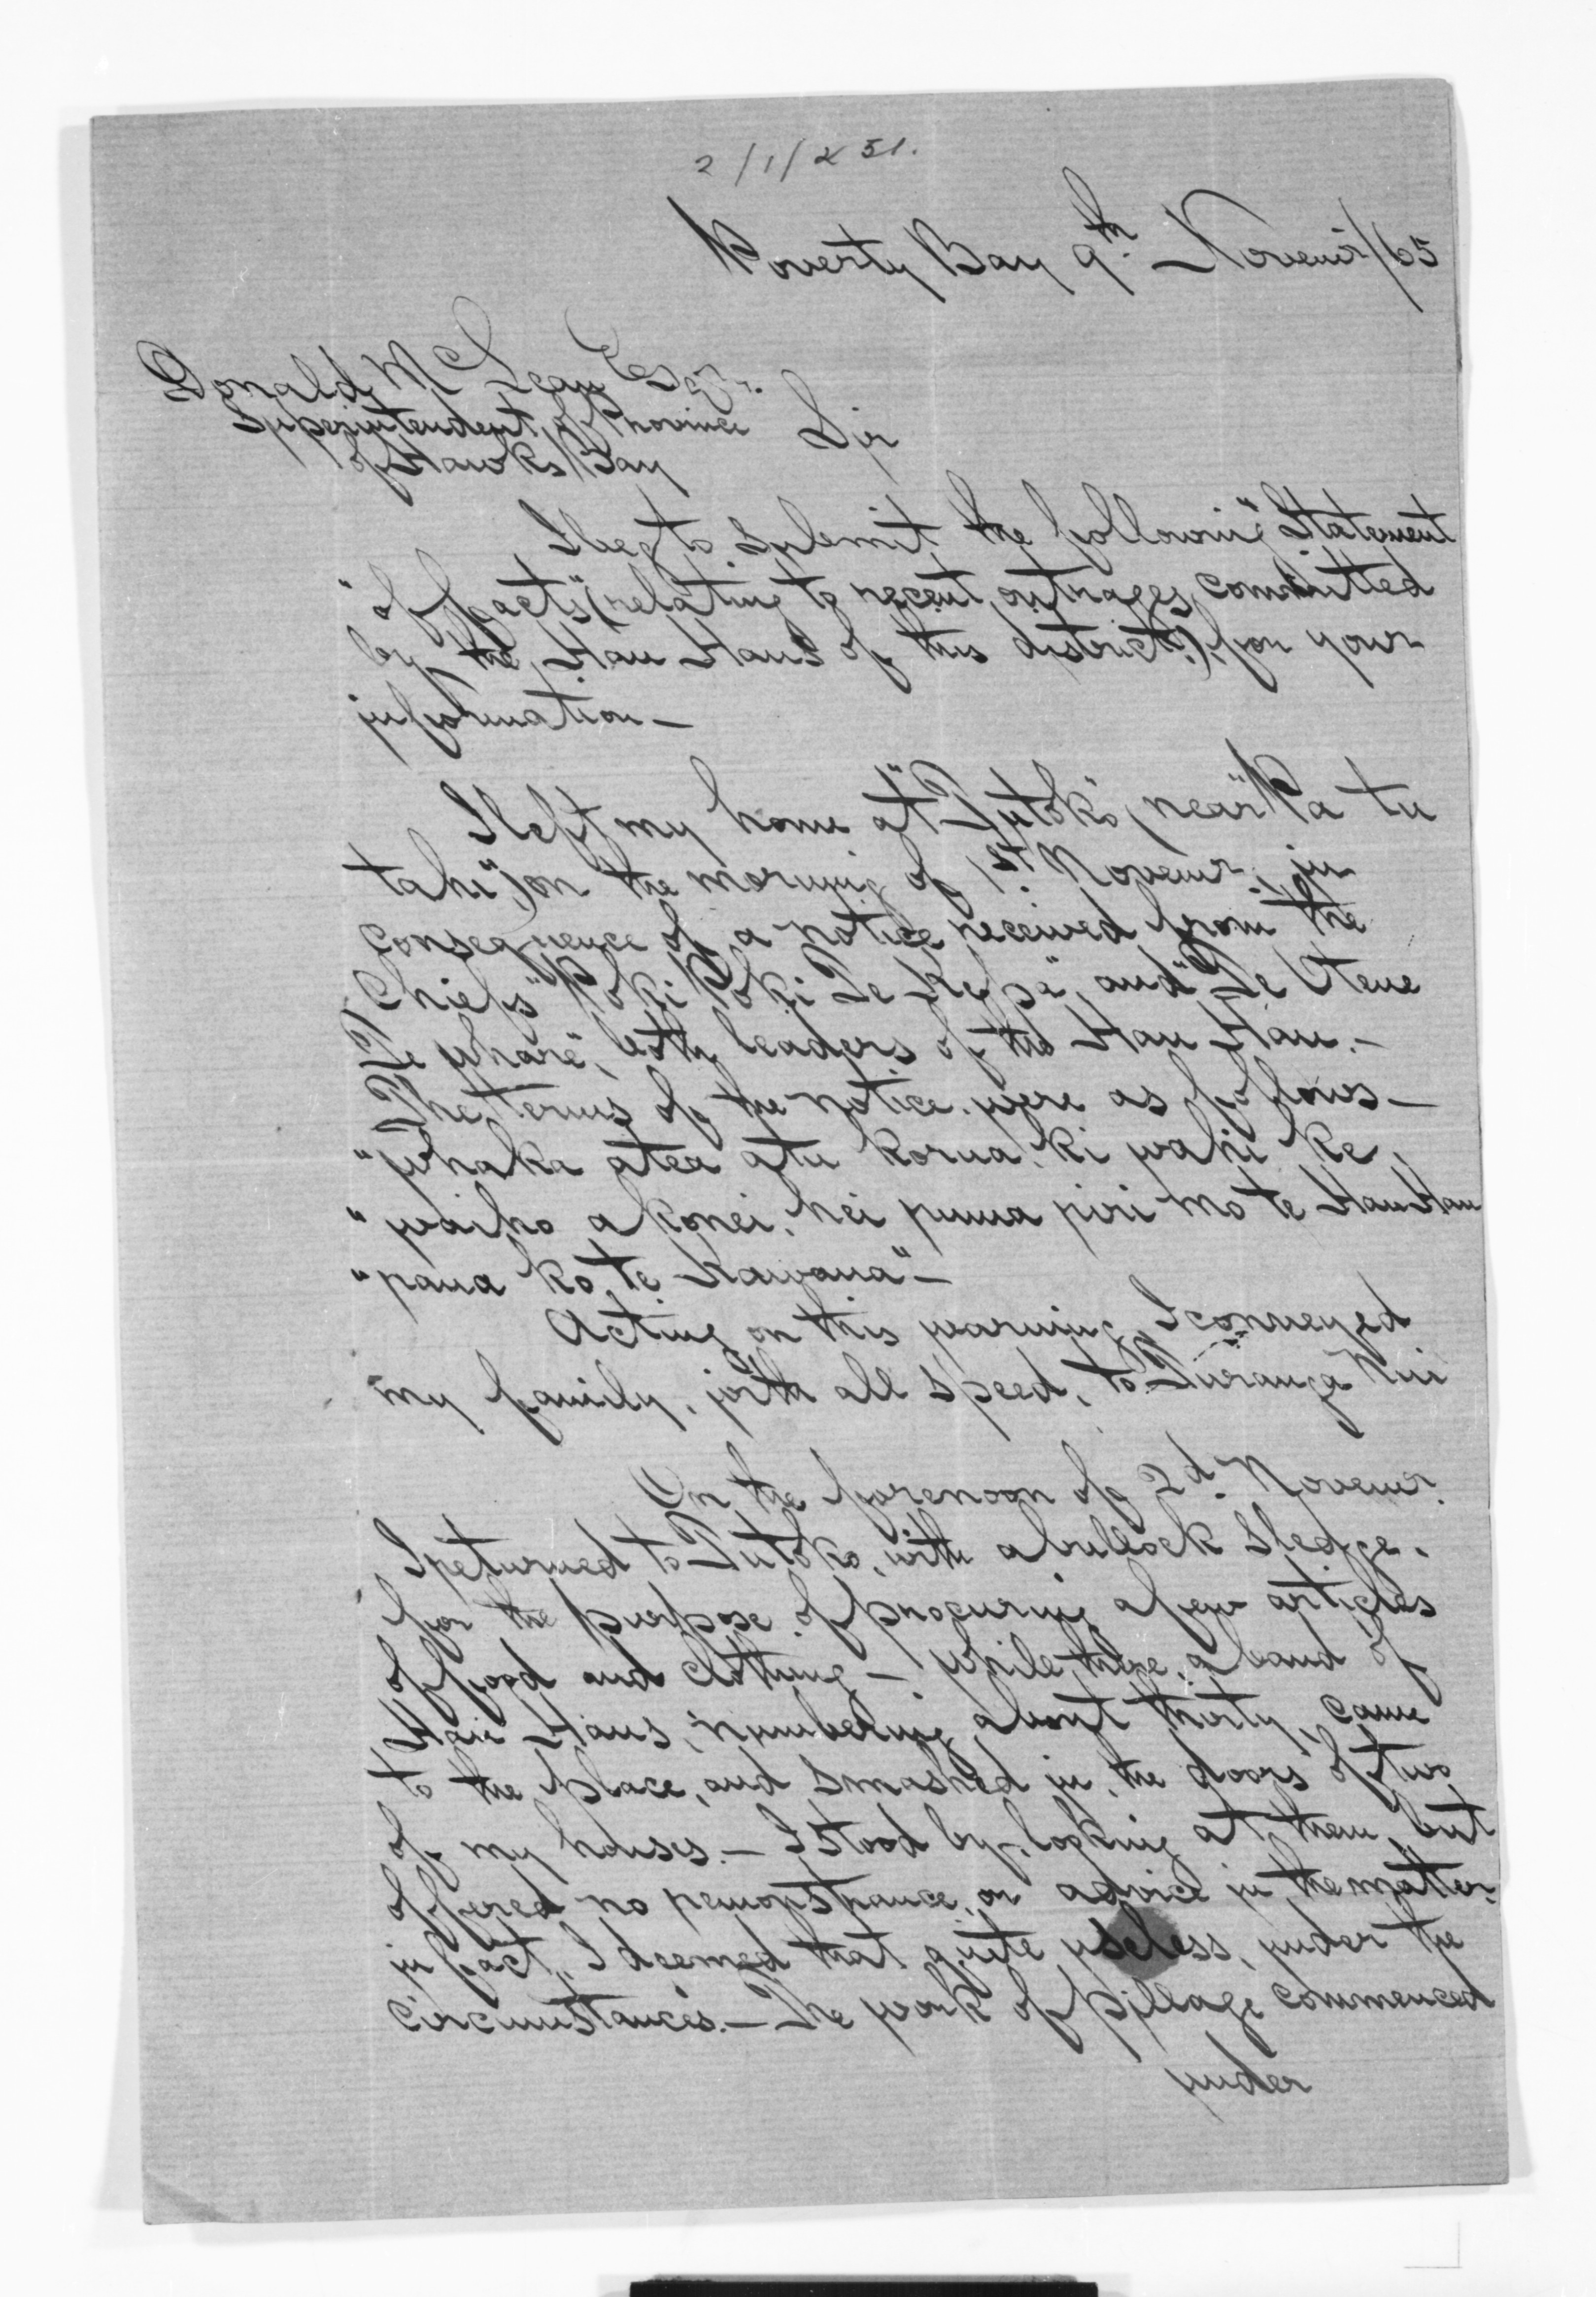 2/1/251.
Poverty Bay 9th Novemr/65
Donald McLean Esqr.
Superintendent of Province
of Hawks Bay
Sir
I beg to submit the following "Statement
"of facts" (relating to recent outrages committed
by the Hau Haus of this district,) for your
information —
I left my home at "Tutoko", near "Pa tu
tahi", on the morning of 1st. Novemr., in
consequence of a notice received from the
Chiefs "Poki Poki Te Kepa", and "Te Utene
Te Whare", both leaders of the Hau Hau. —
The terms of the notice were as follows —
"Whaka atea atu korua ki wahi ke,
"waiho a konei, hei puua piri mo te Hau Hau
"raua ko te Kawana" —
Acting on this warning, I conveyed
my family, with all speed, to Turanga Nui
On the forenoon of 2d. Novemr.
I returned to Tutoko, with a bullock sledge,
for the purpose of procuring a few articles
of food and clothing — While there, a band of
Hau Haus, numbering about thirty, came
to the place, and smashed in, the doors of two
of my houses. — I stood by, looking at them, but
offered no remonstrance, or advice in the matter.
in fact, I deemed that quite useless, under the
circumstances. — The work of pillage commenced
under